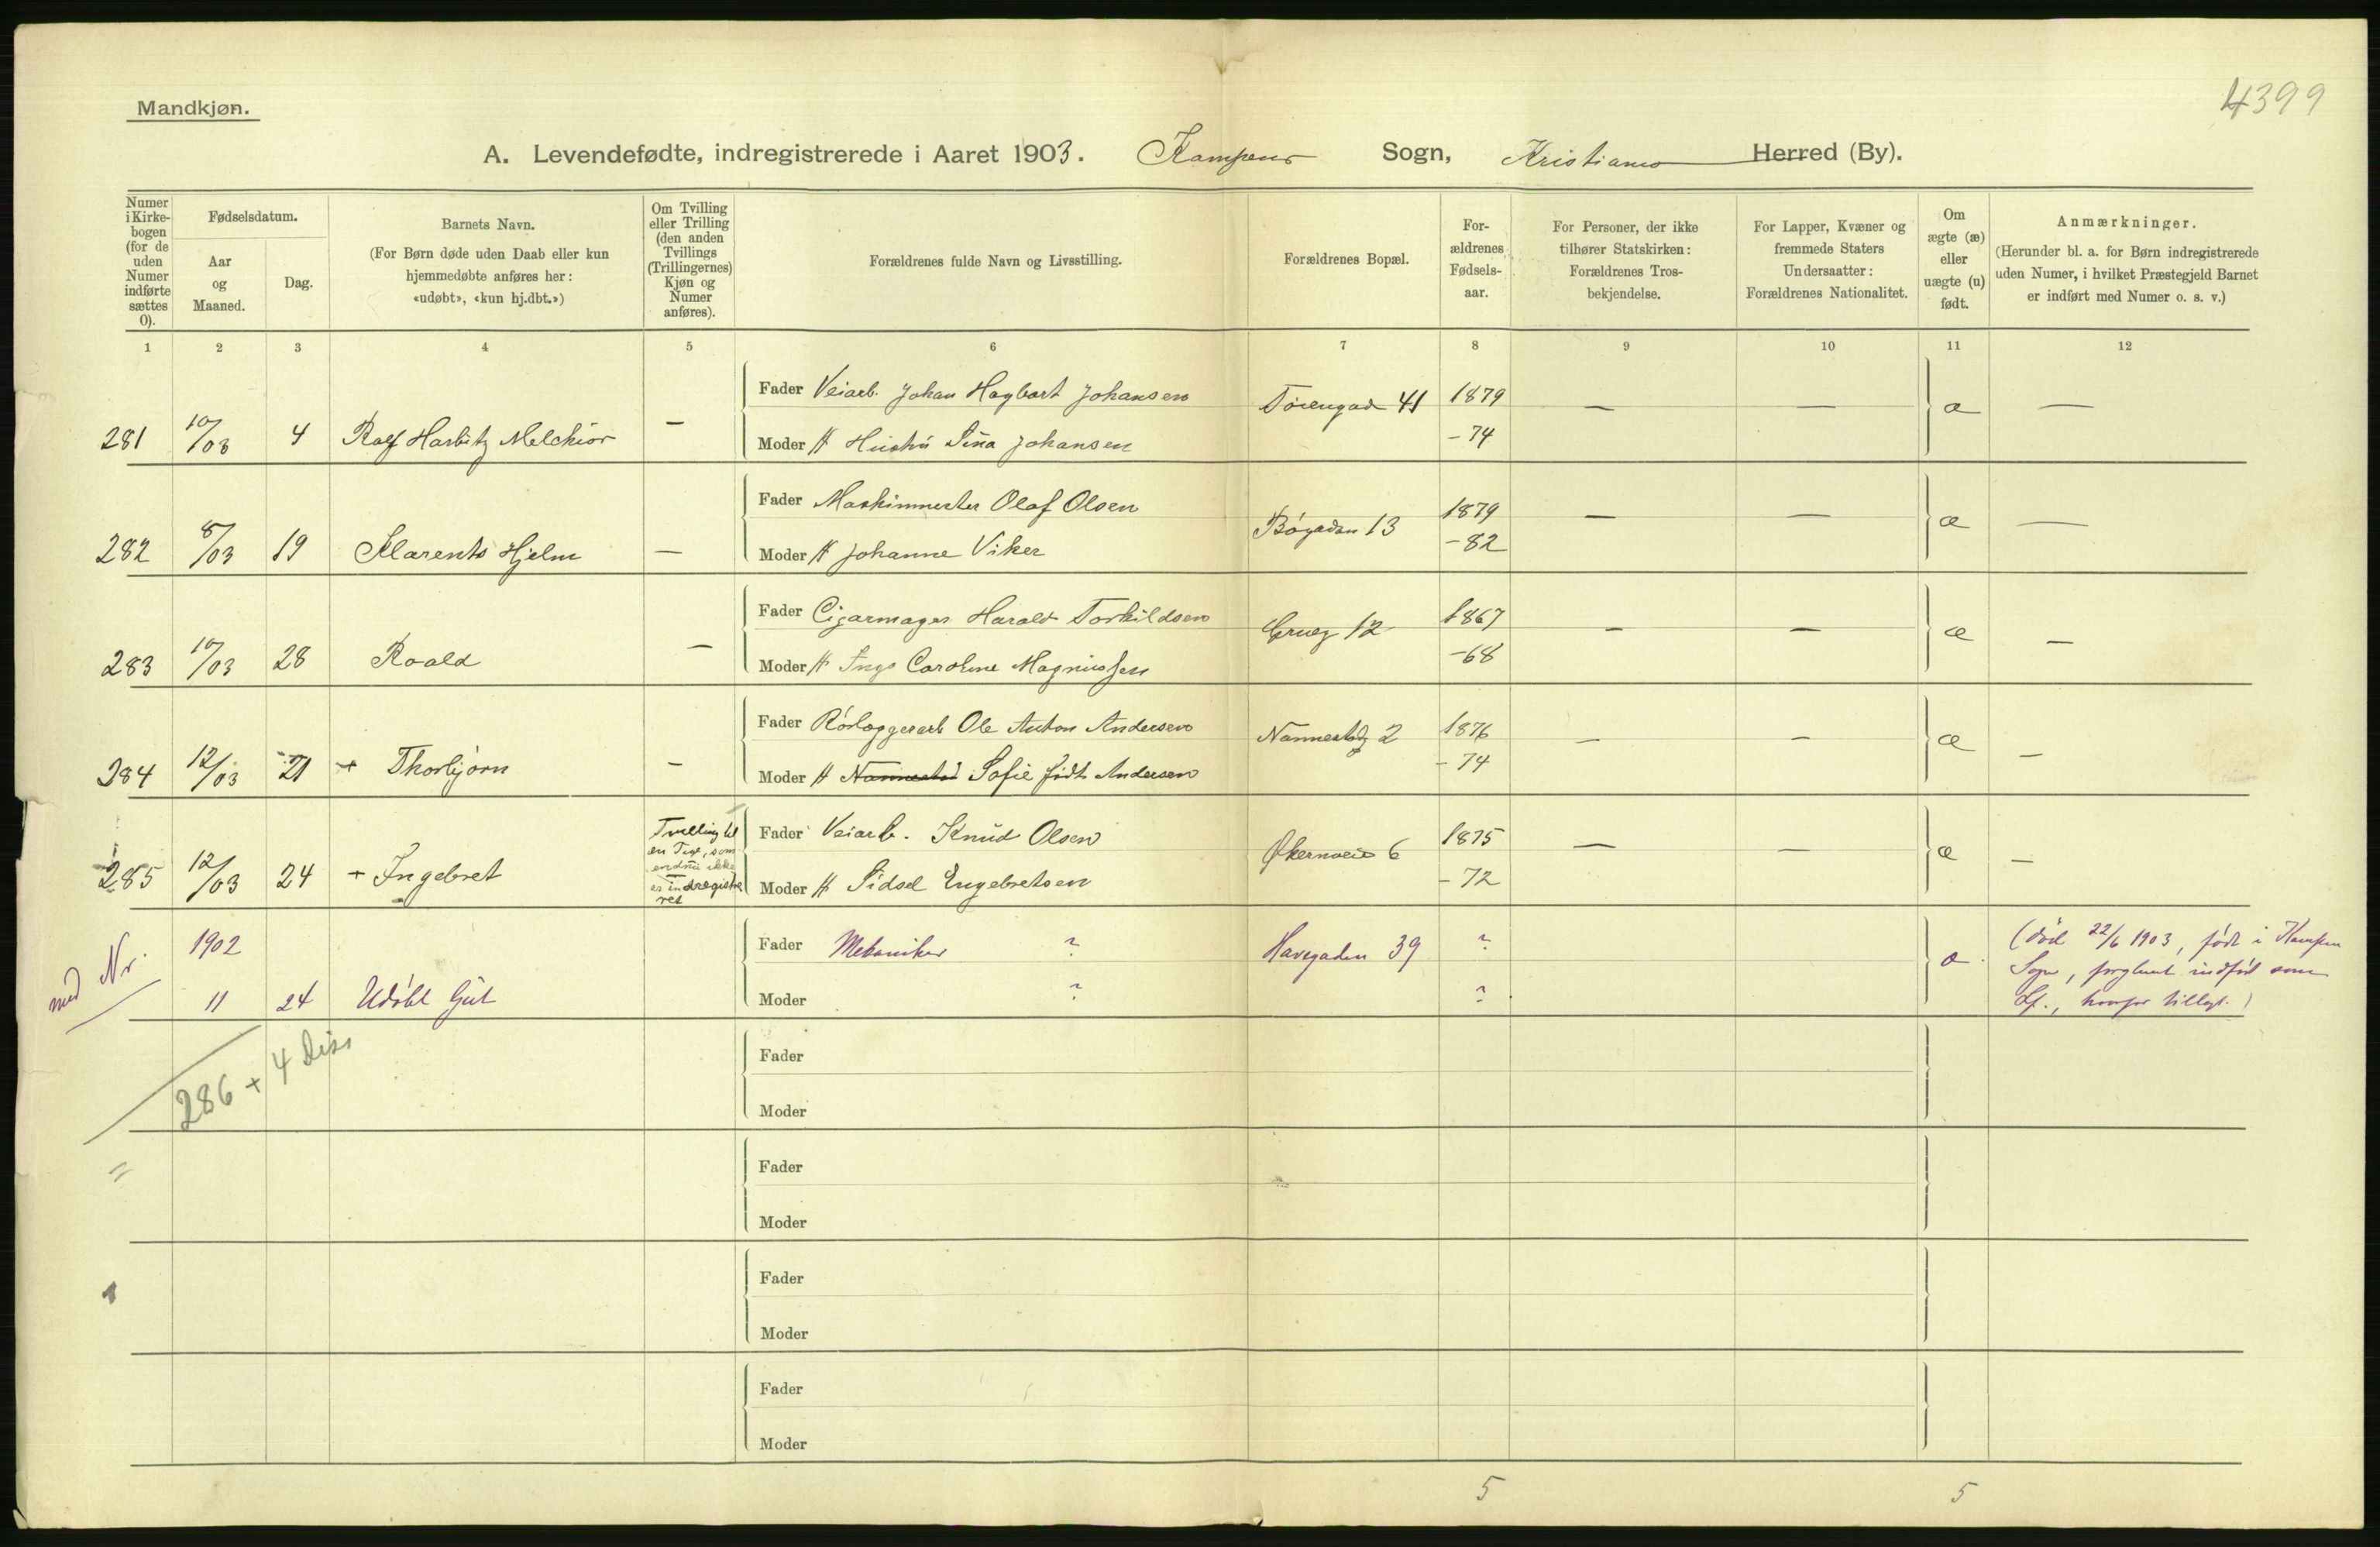 4399
Mandkjøn.
A. Levendefødte, indregistrerede i Aaret 1903. Kampens Sogn, Kristiania Herred (By).
Numer i Kirkebogen (for de uden Numer indførte sættes 0).
Fødselsdatum.
Aar og Maaned.
Dag.
Barnets Navn.
(For Børn døde uden Daab eller kun hjemmedøbte anføres her: «udøbt», «kun hj.dbt.»)
Om Tvilling eller Trilling (den anden Tvillings (Trillingernes) Kjøn og Numer anføres).
Forældrenes fulde Navn og Livsstilling.
Forældrenes Bopæl.
For-ældrenes Fødsels-aar.
For Personer, der ikke tilhører Statskirken: Forældrenes Tros-bekjendelse.
For Lapper, Kvæner og fremmede Staters Undersaatter: Forældrenes Nationalitet.
Om ægte (æ) eller uægte (u) født.
Anmærkninger.
(Herunder bl. a. for Børn indregistrerede uden Numer, i hvilket Præstegjeld Barnet er indført med Numer o. s. v.)
1 2 3 4 5 6 7 8 9 10 11 12
Fader Veiarb. Johan Hagbart Johansen Tøiengad 41 1879 — — æ —
281 10/03 4 Ralf Harbitz Melchior — Moder H Hustru Lina Johansen - 74
Fader Maskinmester Olaf Olsen Bøgadan 13 1879 — — æ —
282 8/03 19 Klarents Hjelm — Moder H Johanne Viker - 82
Fader Cigarmager Harald Torkildsen Grueg 12 1867 — — æ —
283 10/03 28 Roald — Moder H Inga Caroline Magnussen - 68
Fader Rørlæggerarb Ole Anton Andersen Nannestdg 2 1876 — — æ —
284 12/03 21 + Thorbjørn — Moder H Nannestad Sofie født Andersen - 74
Tvilling til en Pige, som endnu ikke er indregistreret
Fader Veiarb. Knud Olsen Økernveie 6 1875 — — æ —
285 12/03 24 + Ingebret Moder H Sidsel Engebretsen - 72
med Nr. 1902 Fader Mekaniker ? Havegaden 39 ? æ (død 22/6 1903, født i Kampen
11 24 Udøbt Gut Moder ? ? Sogn, forglemt indført som
Lf., hvorfor tillagt.)
286 + 4 Diss
Fader
Moder
=
Fader
Moder
Fader
Moder
Fader
Moder
5 5